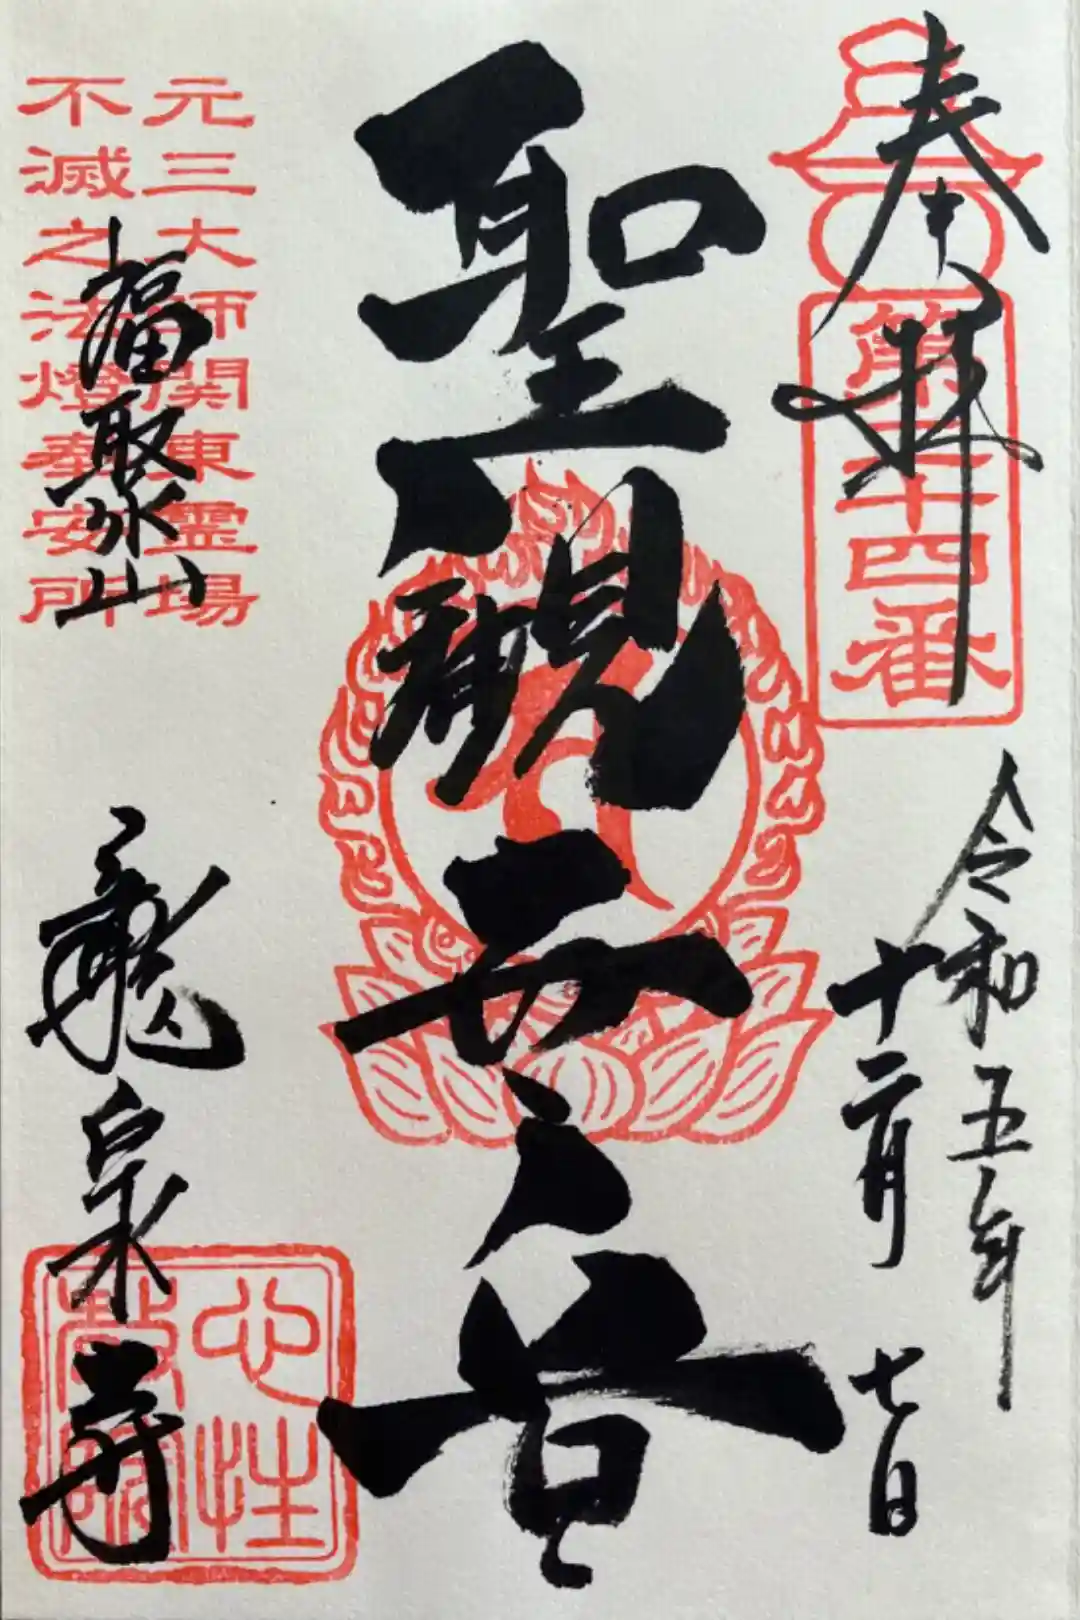 奉拝
第二十四番
令和五年
十二月七日
聖観世音
元三大師関東霊場
不滅之法燈奉安所
福聚山
龍泉寺